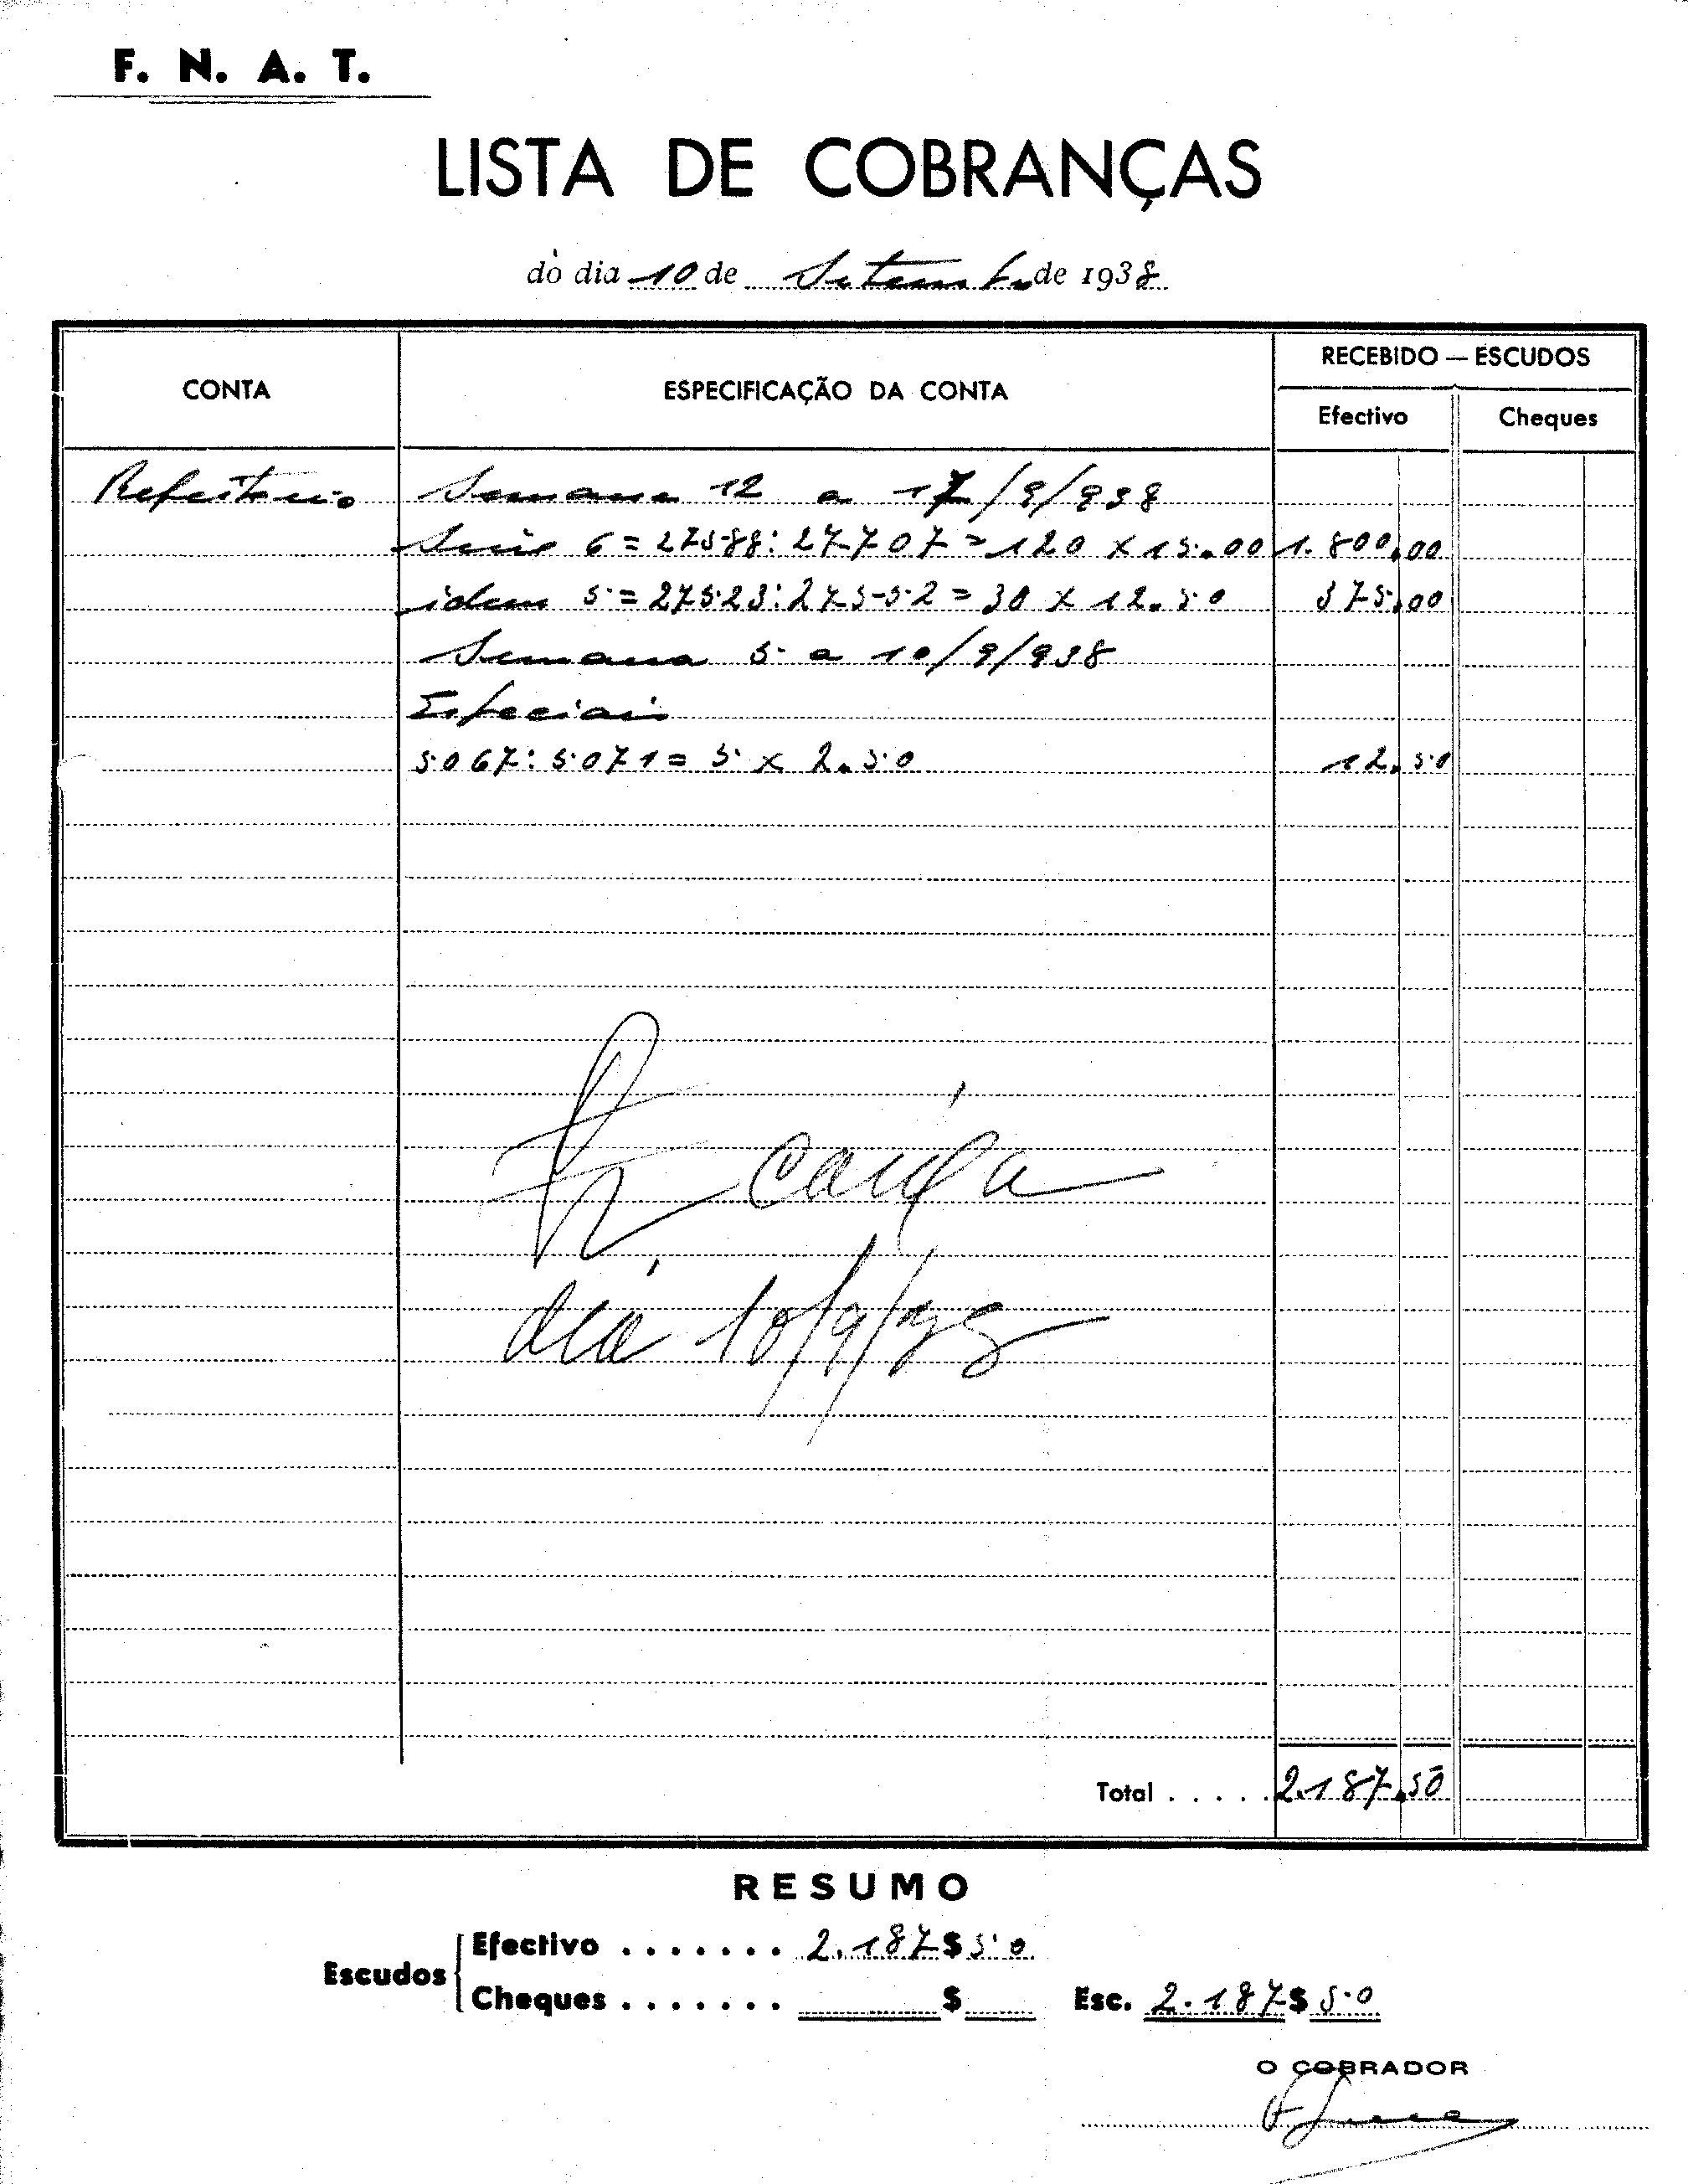 F. N. A. T.
LISTA DE COBRANÇAS
do dia 10 de Setembro de 1938
CONTA
ESPECIFICAÇÃO DA CONTA
RECEBIDO — ESCUDOS
Efectivo
Cheques
Refeitorio Semana 12 a 17/9/938
Serie 6 = 27588: 27707 = 120 x 15.00 1.800,00
idem 5 = 27523: 27552 = 30 x 12.50 375,00
Semana 5 a 10/9/938
Especiais
5067: 5071 = 5 x 2.50 12,50
caixa
dia 10/9/38
Total . . . . . 2.187,50
RESUMO
Escudos
Efectivo . . . . . . . 2.187$50
Cheques . . . . . . . $
Esc. 2.187$50
O COBRADOR